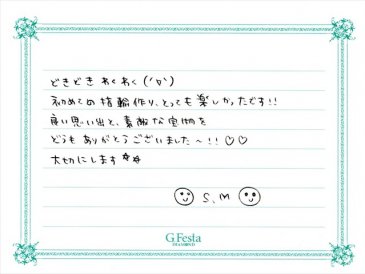 どきどき わくわく('ω')
初めての指輪作り、とっても楽しかったです!!
良い思い出と、素敵な宝物を
どうもありがとうございました〜!!♡♡
大切にします
S.M
G.Festa
DIAMOND